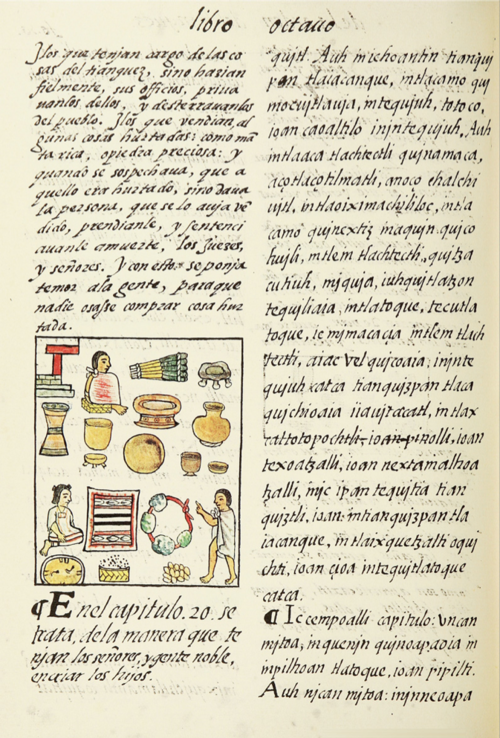 libro octauo
Ylos que tenjan cargo de las co
sas del tianguez, sino hazian
fielmente, sus officios, priua
uanlos dellos, y desterrauanlos
del pueblo. Ylos que vendian, al
gunas cosas hurtadas: como mã
ta rica, opiedra preciosa: y
quando se sospechaua, que a
quello era hurtado, sino daua
la persona, que se lo auja vẽ
dido, prendianle, y sentenci
auanle amuerte, los juezes,
y señores. Y con esto se ponja
temor ala gente, para que
nadie osasse comprar cosa hur
tada.
¶ En el capitulo. 20. se
trata, de la manera que te
njan los señores, y gente noble,
en criar los hijos.
qujtl. Auh in iehoantin tianquj
pan tlaiacanque, intlacamo quj
mocujtlauja, in tequjuh, totoco,
ioan caoaltilo inintequjuh. Auh
intlaaca tlachtectli qujnamaca,
aço tlaçotilmatli, anoço chalchi
ujtl, intlaoiximachililoc, intla
camo qujnextiz in aqujn qujco
hujli, in tlem tlachtectli, qujtza
cutiuh, mjqujia, iuhqujtlatzon
tequjliaia, in tlatoque, tecutla
toque, ic mimacacia in tlem tlach
tectli, aiac vel qujcoaia: injnte
qujuh catca tianqujzpan tlaca
qujchioaia iiaujtacatl, in tlax
caltotopochtli, ioan pinolli, ioan
texoatzalli, ioan nextamalhoa
tzalli, njc ipan tequjtia tian
qujztli, ioan in tianqujzpan tla
iacanque, in tlaixquetzalti oquj
chti, ioan çioa in tequjtlatoque
catca.
¶ Ic cempoalli capitulo: vncan
mjtoa, in quenjn qujnoapaoaia in
inpilhoan tlatoque, ioan pipilti.
Auh njcan mjtoa: injnneoapa